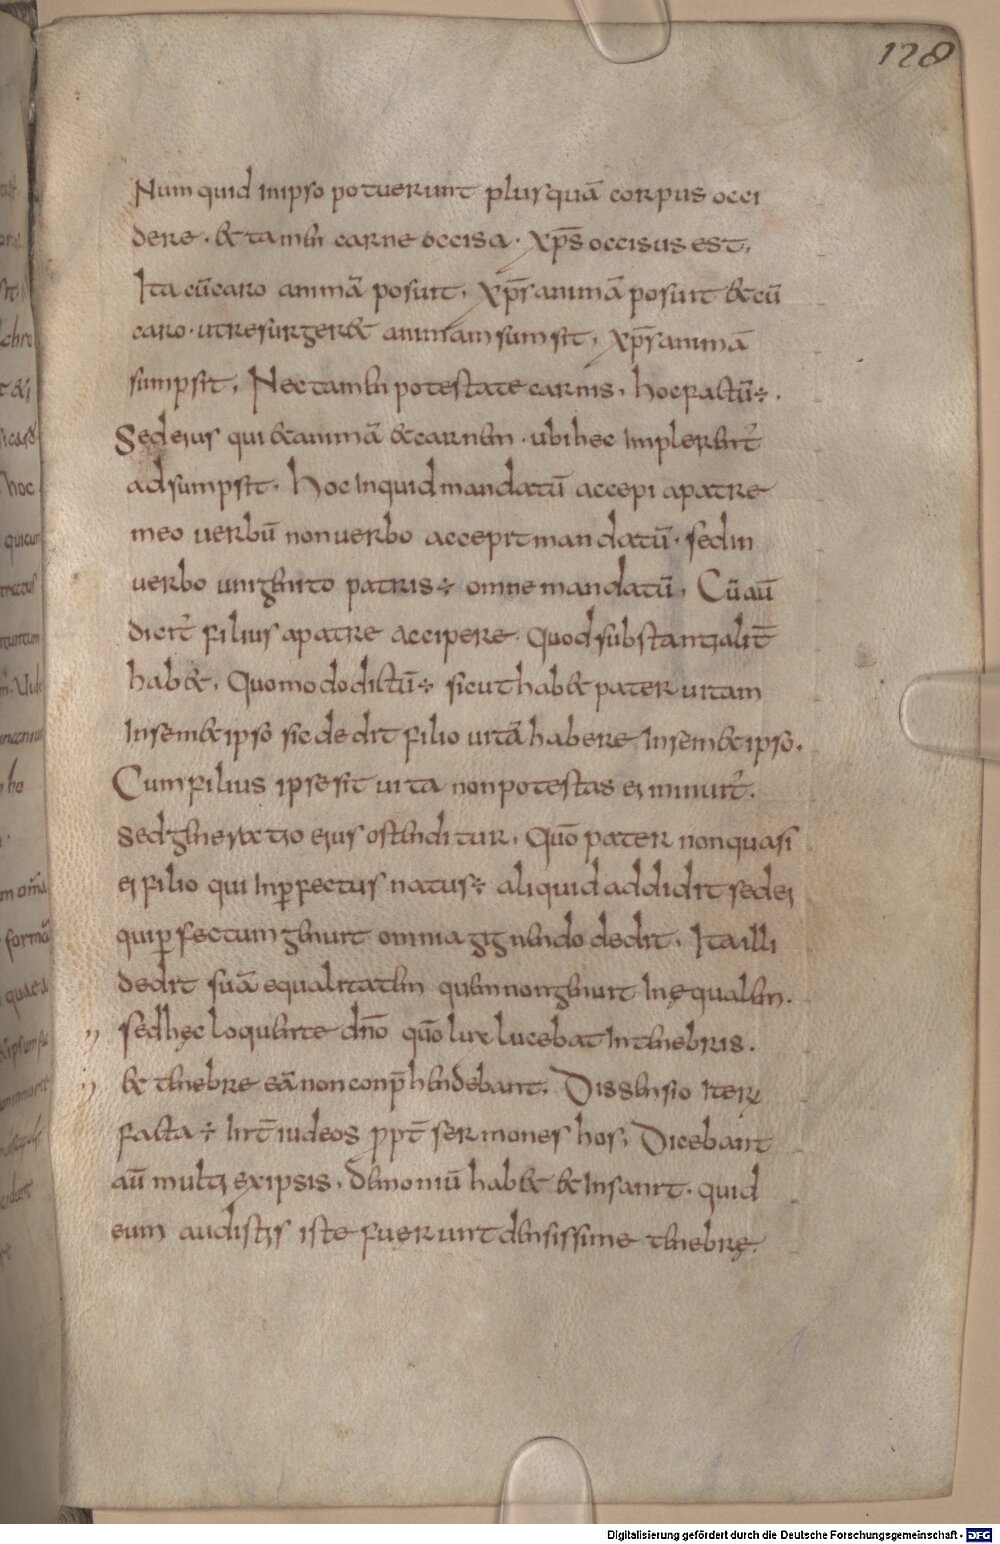 128
Num quid inipso potuerunt plusquā corpus occi
dere · & tamen carne occisa · xp̄s occisus est,
Ita cū caro animā posuit, xp̄s animā posuit & cū
caro · ut resurger& animam sumsit, xp̄s animā
sumpsit, Nec tamen potestate carnis, hoc factū÷ .
Sed eius qui & animā & carnem · ubi hec implerent᷑
adsumpsit. hoc inquid mandatū accepi apatre
meo verbū non verbo accepit mandatū · sed in
verbo unigenito patris÷ omne mandatū, Cū aū
dicit᷑ filius apatre accipere · quod substantialit̄
hab&, Quomodo dictū÷ sicut hab& pater uitam
Insem&ipso sic dedit filio uitā habere Insem&ipso.
Cum filius ipse sit uita non potestas ei minuit᷑.
Sed generatio eius ostenditur, Quō pater non quasi
ei filio qui inp̱fectus natus÷ aliquid addidit sed ei
qui p̱fectum genuit omnia gignendo dedit. Ita illi
dedit suā equalitatem quem non genuit Inęqualem.
sed hęc loquente dn̄o quō lux lucebat In tenebris.
& tenebre eā non conp̄hendebant. Dissensio iterū
facta ÷ int̄ iudeos ppt̄ sermones hos, Dicebant
aū multi ex ipsis, Demoniū hab& & Insanit. quid
eum auditis iste fuerunt densissime tenebrę.
Digitalisierung gefördert durch die Deutsche Forschungsgemeinschaft - DFG